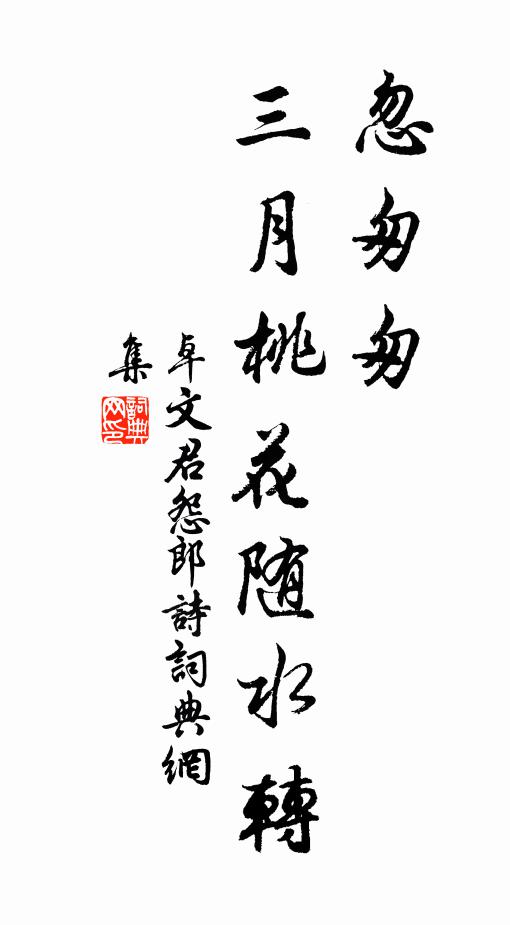 忽匆匆
三月桃花随水轉
卓文君怨郎詩詞典網
集
詞典
网印